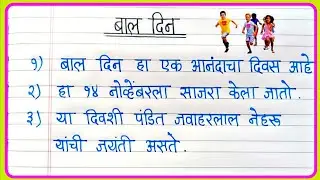 बाल दिन
१) बाल दिन हा एक आनंदाचा दिवस आहे
२) हा १४ नोव्हेंबरला साजरा केला जातो.
३) या दिवशी पंडित जवाहरलाल नेहरू
यांची जयंती असते.